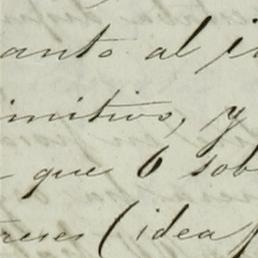 anto al i
imitivo, y
que 6 sob
reses (idea